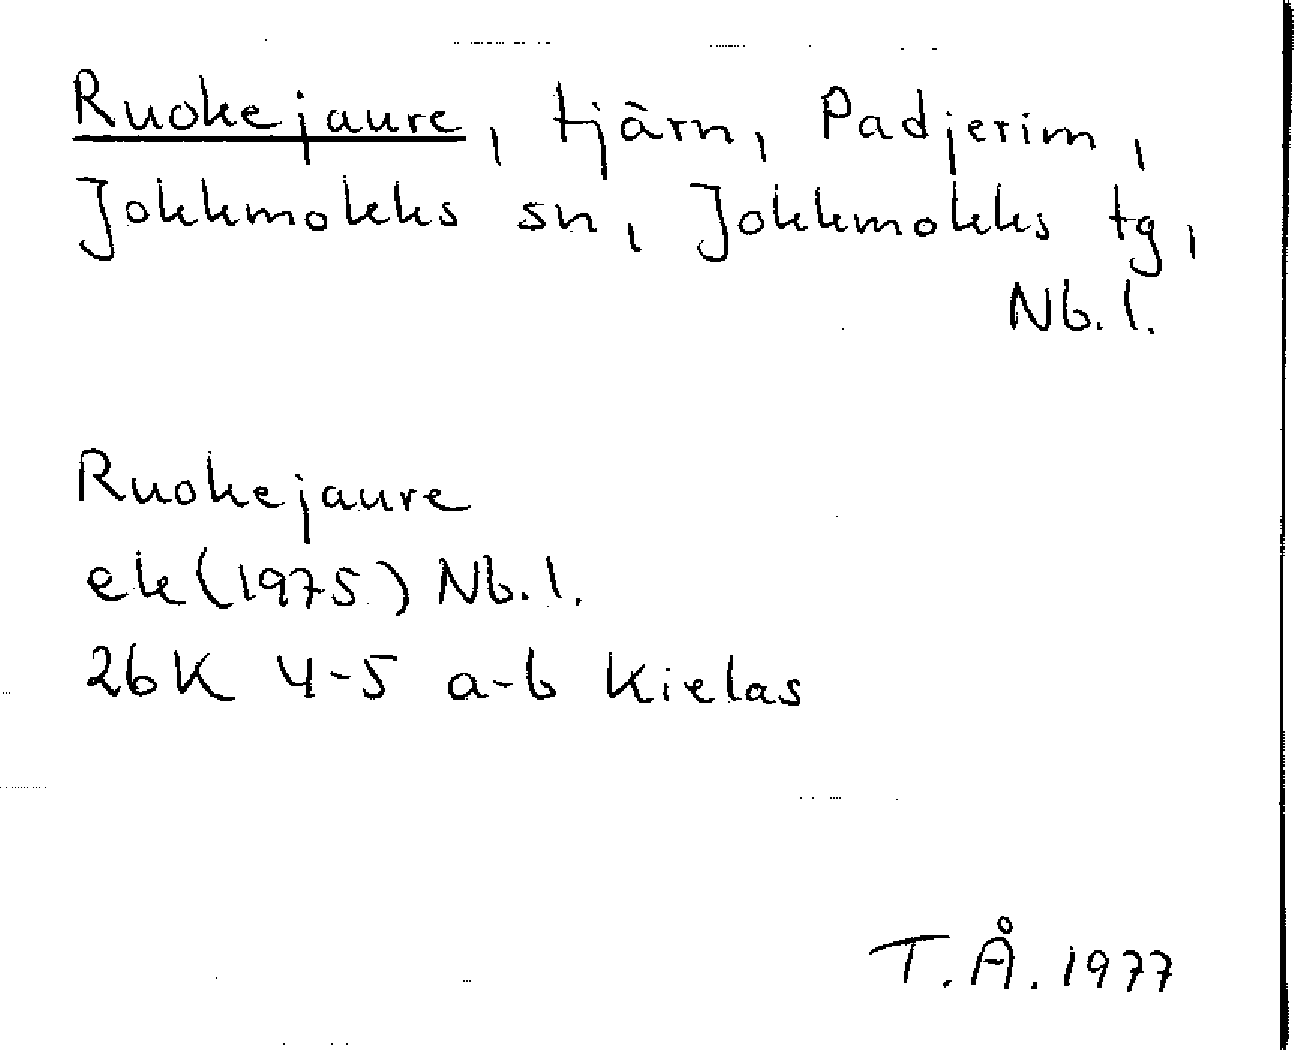 Ruokejaure, tjärn, Padjerim,
Jokkmokks sn, Jokkmokks tg,
Nb. l.
Ruokejaure
ek (1975) Nb. l.
26K 4-5 a-b Kielas
T. Å. 1977